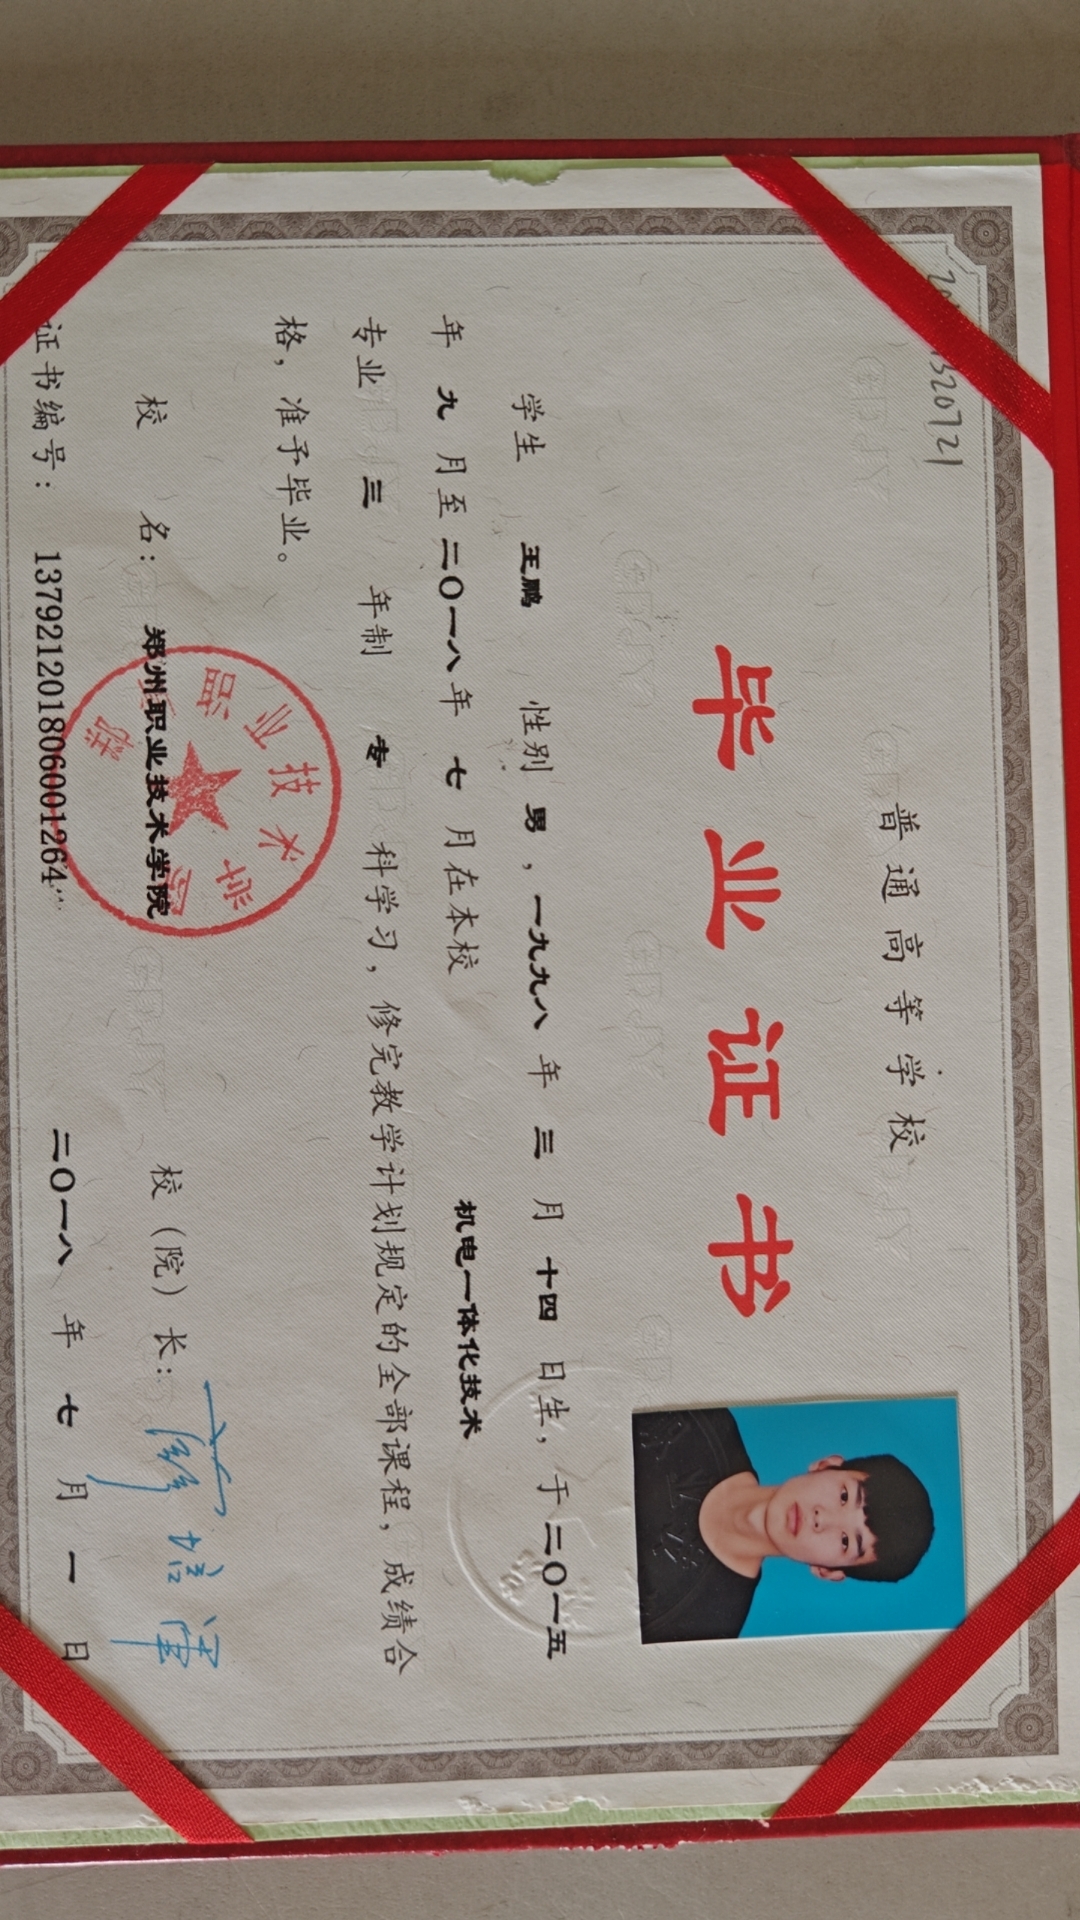 320721
普通高等学校
毕业证书
学生 王鹏 性别 男，一九九八 年 三 月 十四 日生，于二〇一五
年 九 月至二〇一八年 七 月在本校 机电一体化技术
专业 三 年制 专 科学习，修完教学计划规定的全部课程，成绩合
格，准予毕业。
校 名：郑州职业技术学院 校（院）长：
证书编号：137921201806001264 二〇一八 年 七 月 一 日